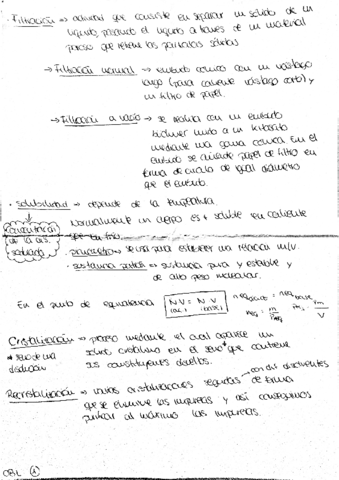 Filtración → actividad que consiste en separar un sólido de un
líquido, pasando el líquido a través de un material
poroso que retiene las partículas sólidas
→ Filtración normal → embudo cónico con un vástago
largo (para caliente vástago corto) y
un filtro de papel.
→ Filtración a vacío → se realiza con un embudo
büchner unido a un kitasato
mediante una goma cónica. En el
embudo se papel de filtro en
forma de círculo de igual diámetro
que el embudo.
· Solubilidad → depende de la temperatura.
Normalmente un cuerpo es + soluble en caliente
que en frío.
concentración
de la dis.
→ se usa para establecer una relación m/v.
· sustancia patrón → sustancia pura y estable y
de alto peso molecular.
En el punto de equivalencia N·V = N·V
Cristalización → proceso mediante el cual aparece un
sólido cristalino en el seno* que contiene
sus constituyentes
* seno de una
disolución
Recristalización → varias cristalizaciones seguidas de forma
con dif. disolventes
que se eliminen las impurezas y así conseguimos
purificar al máximo las impurezas.
OBL 1